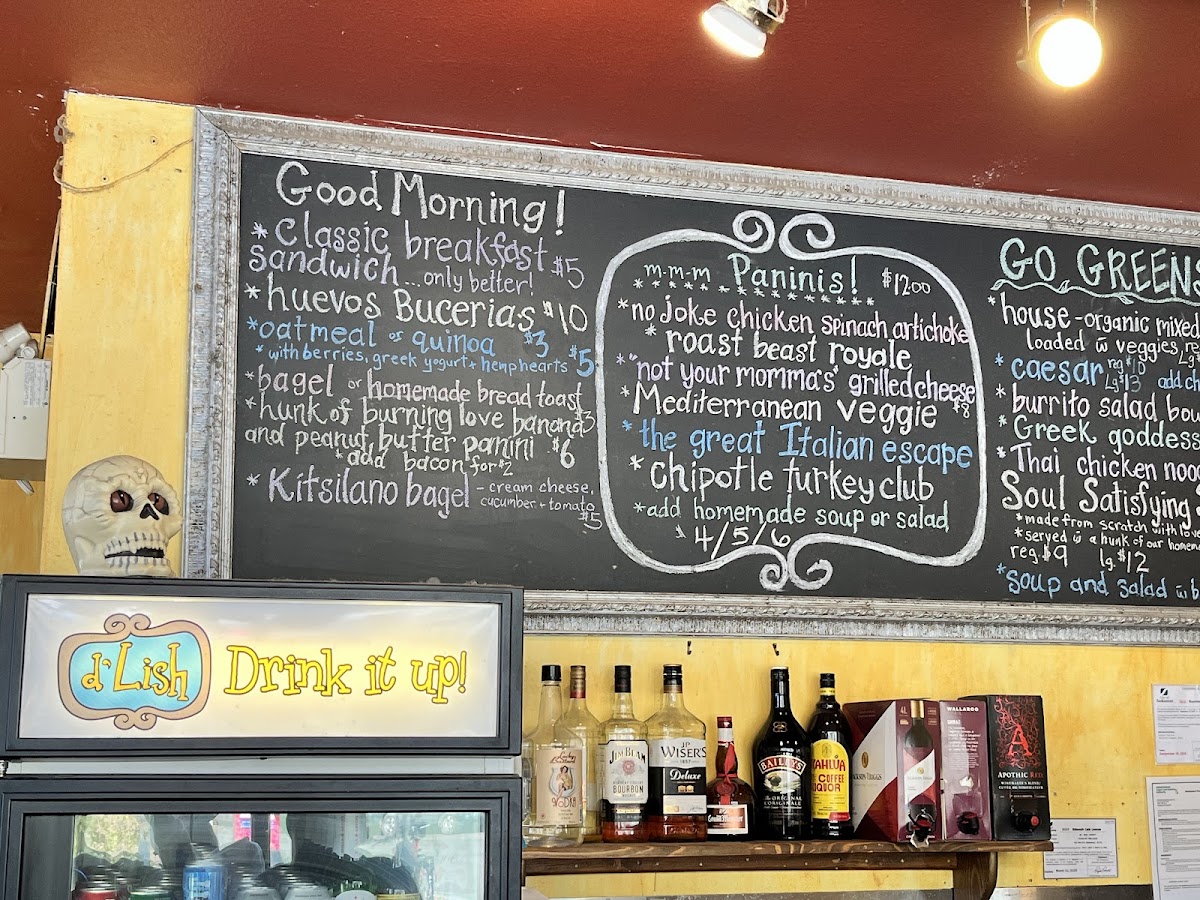 Good Morning!
* classic breakfast
sandwich ...only better! $5
* huevos Bucerias $10
* oatmeal or quinoa $3
* with berries, greek yogurt + hemp hearts $5
* bagel or homemade bread toast $3
* hunk of burning love banana
and peanut butter panini $6
* add bacon for $2
* Kitsilano bagel - cream cheese,
cucumber + tomato
$5
m-m-m Paninis! $1200
* no joke chicken spinach artichoke
* roast beast royale
* "not your momma's" grilled cheese
$8
* Mediterranean veggie
* the great Italian escape
* chipotle turkey club
* add homemade soup or salad
$ 4/5/6
GO GREENS
* house - organic mixed
loaded w veggies, reg
Lg
* caesar reg $10
Lg $13 add ch
* burrito salad bow
* Greek goddess
* Thai chicken nood
Soul Satisfying
* made from scratch with love
* served w a hunk of our homem
reg. $9 lg. $12
* soup and salad w b
d'Lish Drink it up!
VODKA
JIM BEAM
BOURBON
J.P.
WISER'S
Deluxe
Grand Marnier
BAILEYS
THE ORIGINAL
KAHLÚA
COFFEE
LIQUOR
JACKSON-TRIGGS
4L
WALLAROO
SHIRAZ
A
APOTHIC RED